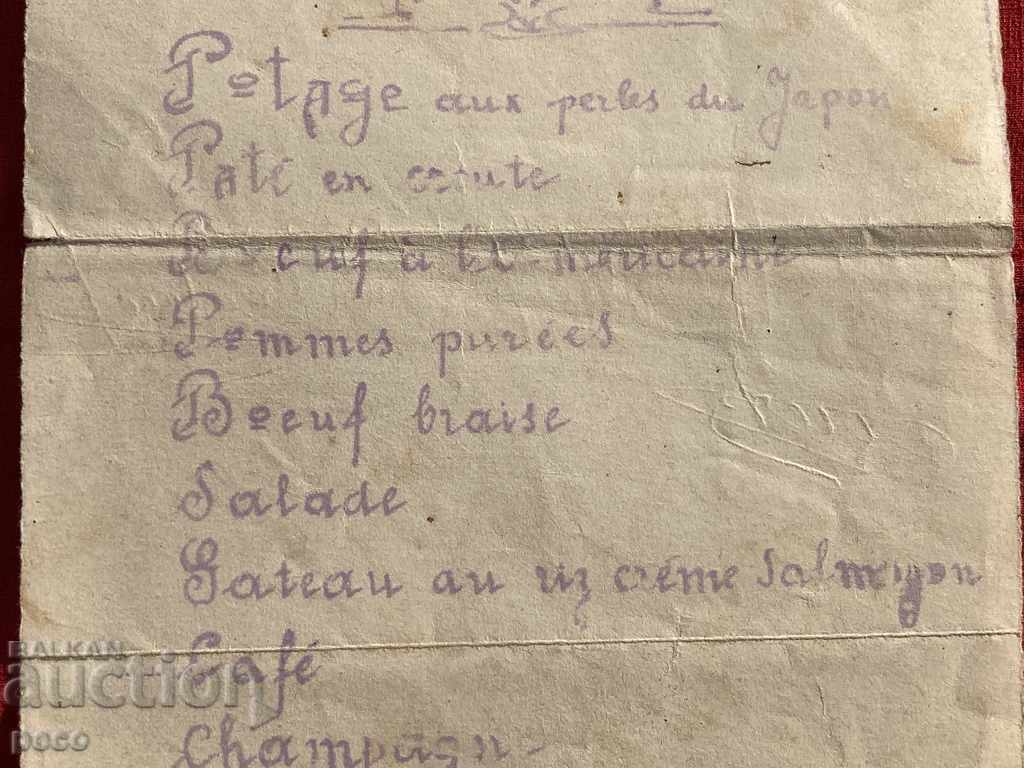 Potage aux perles du Japon
Paté en croute
Boeuf à la
Pommes purées
Boeuf braise
Salade
Gateau au riz crème
Café
Champagn
BALKAN
auction
poco